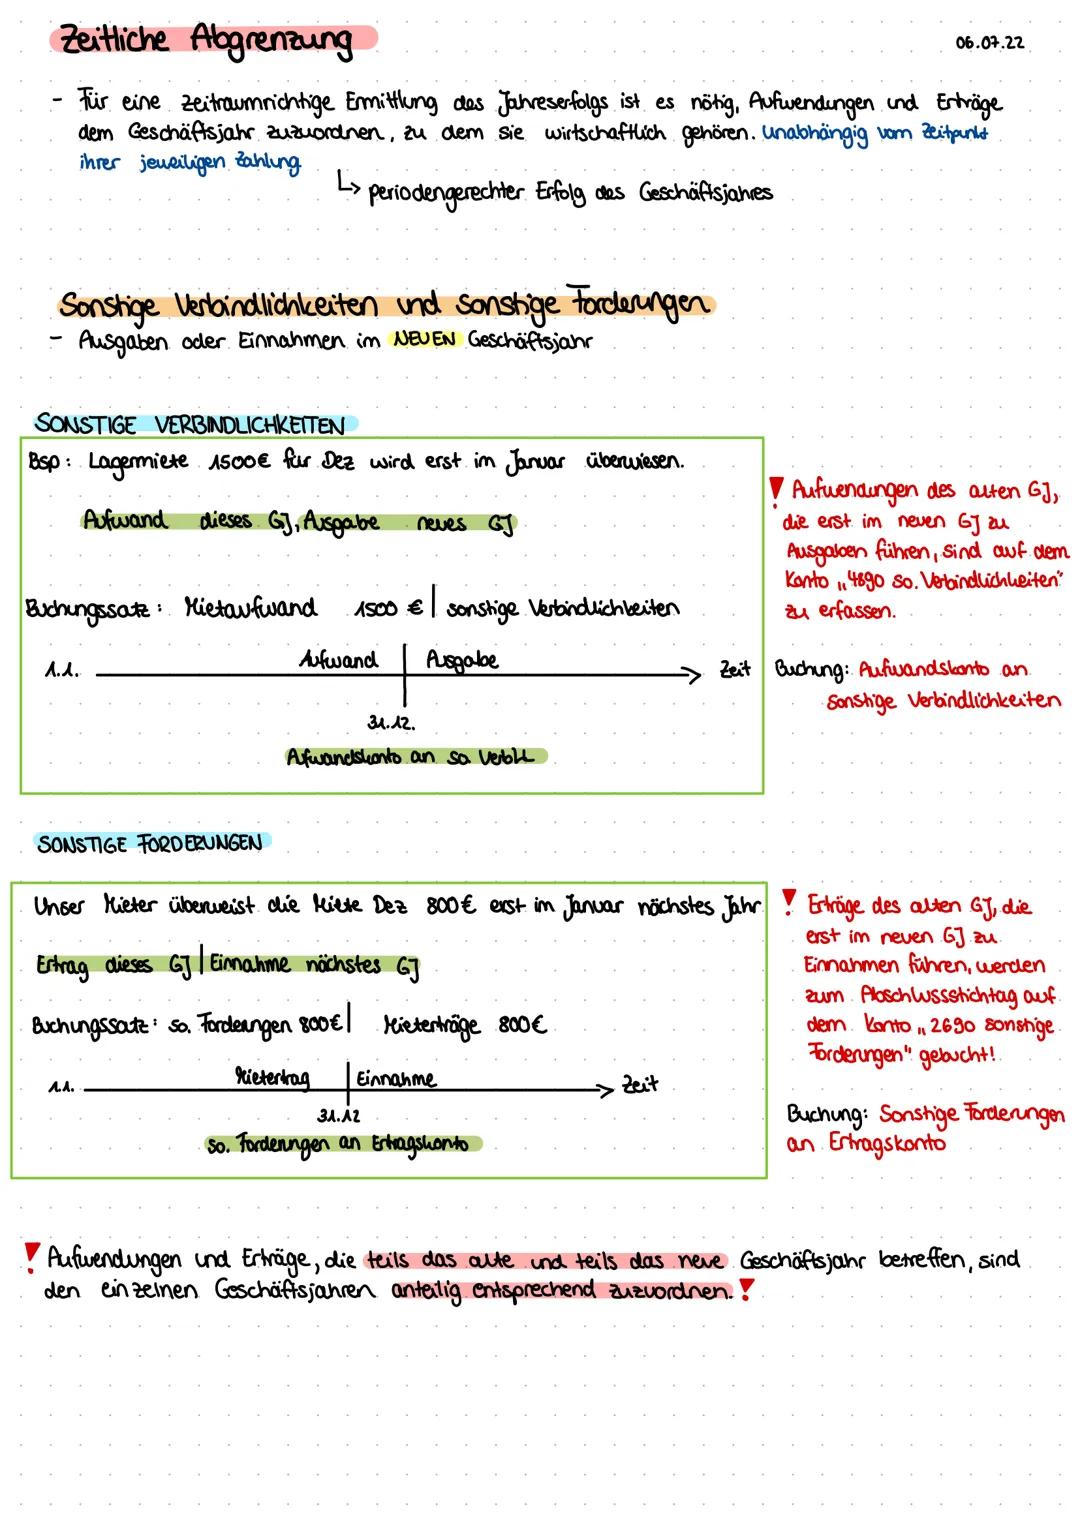 Zeitliche Abgrenzung
06.07.22
- Für eine zeitraumrichtige Ermittlung des Jahreserfolgs ist es nötig, Aufwendungen und Erträge
dem Geschäftsjahr zuzuordnen, zu dem sie wirtschaftlich gehören. Unabhängig vom Zeitpunkt
ihrer jeweiligen Zahlung
↳ periodengerechter Erfolg des Geschäftsjahres
Sonstige Verbindlichkeiten und sonstige Forderungen
- Ausgaben oder Einnahmen im NEUEN Geschäftsjahr
SONSTIGE VERBINDLICHKEITEN
Bsp: Lagermiete 1500€ für Dez wird erst im Januar überwiesen.
Aufwand dieses GJ, Ausgabe neues GJ
Buchungssatz: Mietaufwand 1500 € | sonstige Verbindlichkeiten
1.1. Aufwand | Ausgabe Zeit
31.12.
Afwandskonto an so. Verblk
! Aufwendungen des alten GJ,
die erst im neuen GJ zu
Ausgaben führen, sind auf dem
Konto „4890 so. Verbindlichkeiten"
zu erfassen.
Buchung: Aufwandskonto an
sonstige Verbindlichkeiten
SONSTIGE FORDERUNGEN
Unser Mieter überweist die Miete Dez 800€ erst im Januar nächstes Jahr
Ertrag dieses GJ | Einnahme nächstes GJ
Buchungssatz: so. Forderungen 800€ | Mieterträge 800€
1.1. Mietertrag | Einnahme Zeit
31.12
so. Forderungen an Ertragskonto
! Erträge des alten GJ, die
erst im neuen GJ zu
Einnahmen führen, werden
zum Abschlussstichtag auf
dem Konto „2690 sonstige
Forderungen" gebucht!
Buchung: Sonstige Forderungen
an Ertragskonto
! Aufwendungen und Erträge, die teils das alte und teils das neue Geschäftsjahr betreffen, sind
den einzelnen Geschäftsjahren anteilig entsprechend zuzuordnen. !